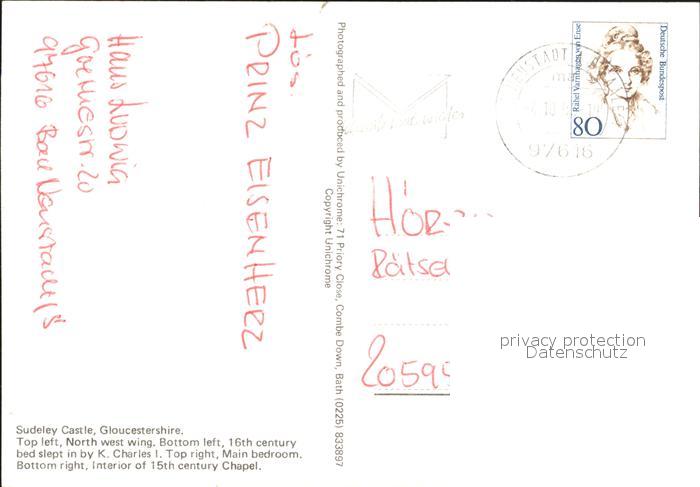 Hans Ludwig
Goethestr. 20
97616 Bad Neustadt/S
Lös.
PRINZ EISENHERZ
Sudeley Castle, Gloucestershire.
Top left, North west wing. Bottom left, 16th century
bed slept in by K. Charles I. Top right, Main bedroom.
Bottom right, Interior of 15th century Chapel.
Photographed and produced by Unichrome: 71 Priory Close, Combe Down, Bath (0225) 833897
Copyright Unichrome
Deutsche Bundespost
Rahel Varnhagen von Ense
80
97616
HÖR
Rätsel
20595
privacy protection
Datenschutz